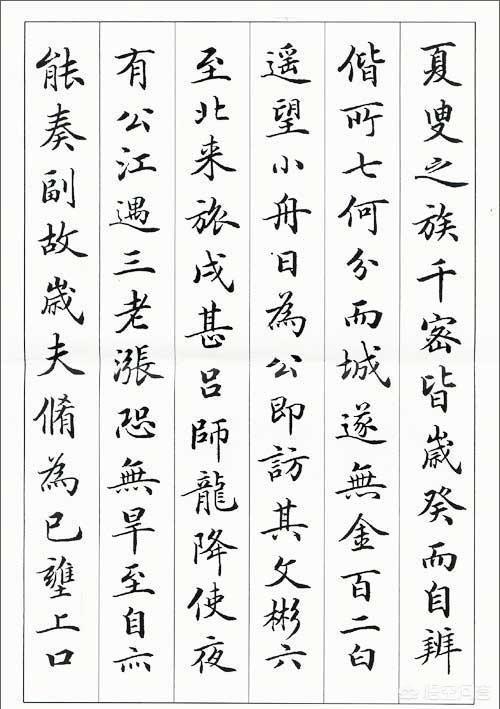 夏叟之族千密皆歲癸而自辨
偕所七何分而城遂無金百二白
遥望小舟日為公即訪其文彬六
至北来旅戌甚吕師龍降使夜
有公江遇三老漲恐無旱至自亦
能奏副故歲夫脩為已壅上口
悟空问答